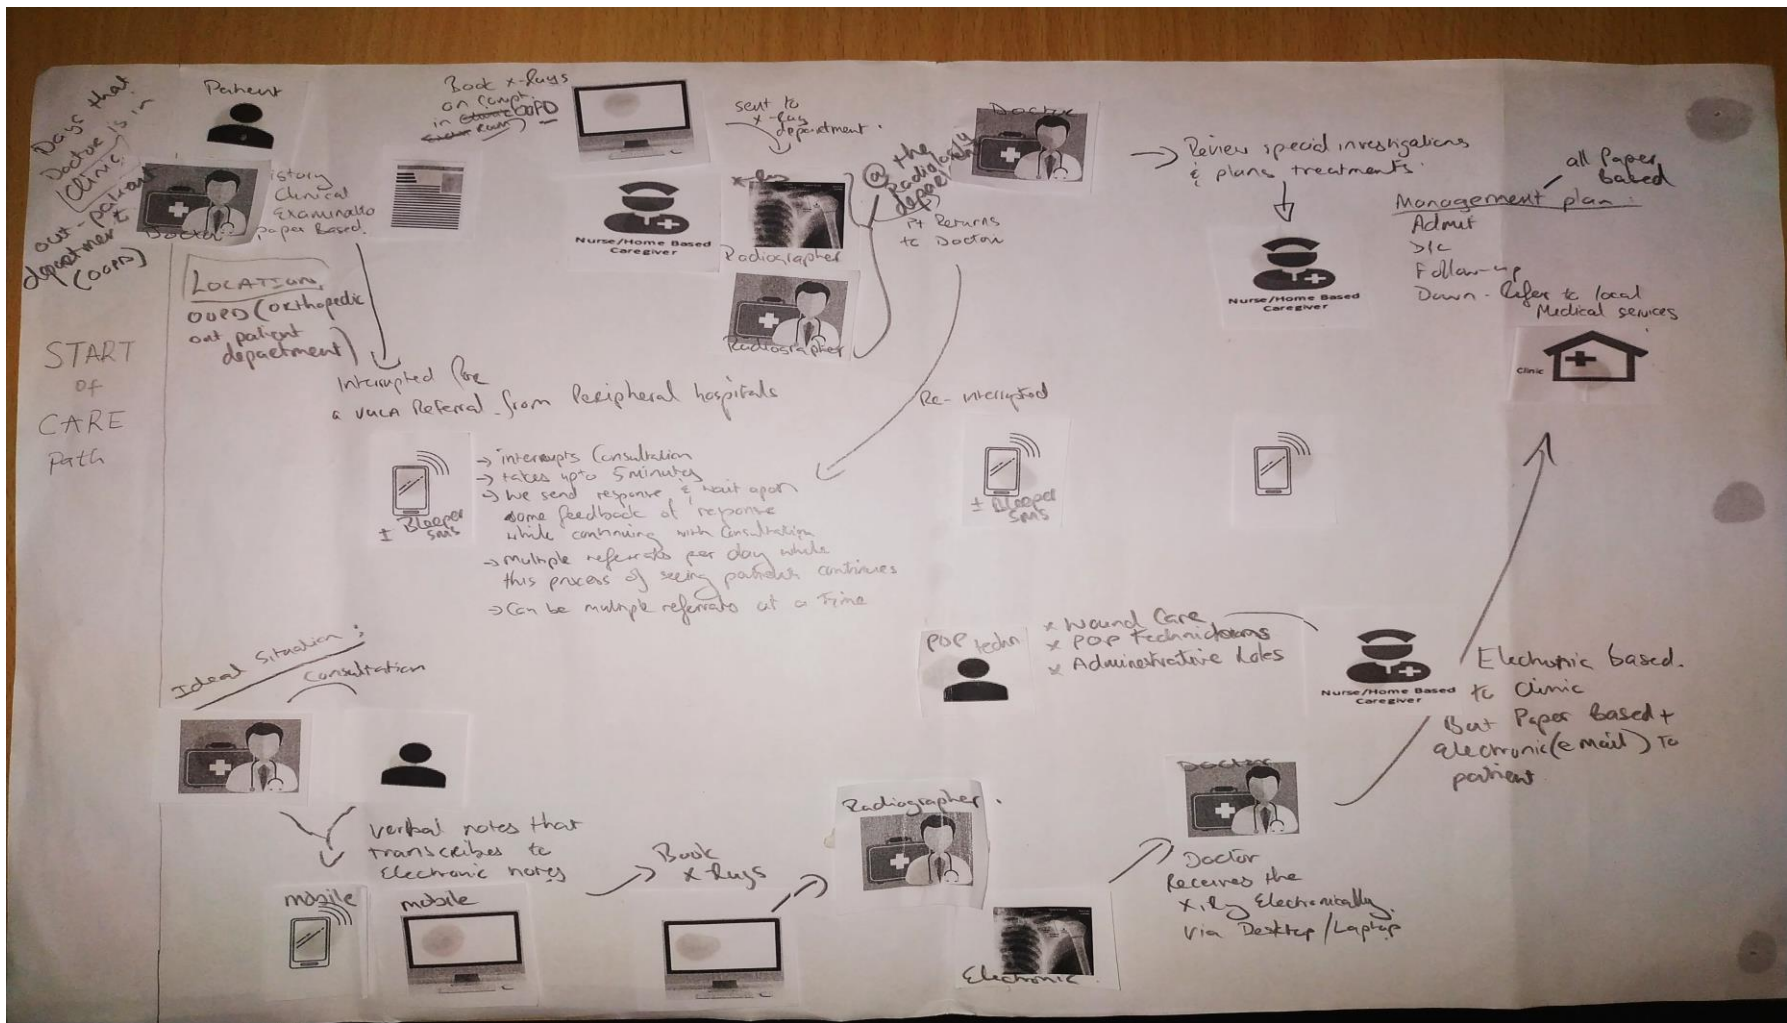 Days that
Doctor is in
Clinic
out-patient
department
(OOPD)
START
OF
CARE
Path
Patient
Doctor
istory
Clinical
Examinatio
paper Based.
LOCATION
OOPD (Orthopedic
out patient
department)
Book x-Rays
on Compt.
in OOPD
Room)
Nurse/Home Based
Caregiver
sent to
x-Ray
department.
x-Ray
Radiographer
Radiographer
@ the
Radiology
department
Doctor
Pt Returns
to Doctor
→ Review special investigations
& plans treatments.
Nurse/Home Based
Caregiver
all Paper
Based
Management plan:
Admit
D/C
Follow-up
Down-Refer to local
Medical services
Clinic
Interrupted for
a VULA Referral from Peripheral hospitals
± Bleeper
SMS
→ interrupts Consultation
→ takes upto 5 minutes
→ We send response, & wait upon
some feedback of response
while continuing with Consultation
→ multiple referrals per day while
this process of seeing patients continues
→ Can be multiple referrals at a Time
Re-interrupted
± Bleeper
SMS
POP techn.
x Wound Care
x POP Technicians
x Administrative Roles
Nurse/Home Based
Caregiver
Electronic based.
to Clinic
But Paper Based +
Electronic (e mail) To
patient
Ideal Situation:
Consultation
verbal notes that
transcribes to
Electronic notes
mobile
mobile
Book
x-Rays
Radiographer.
Electronic.
Doctor
Doctor
Receives the
X-Ray Electronically.
via Desktop/Laptop